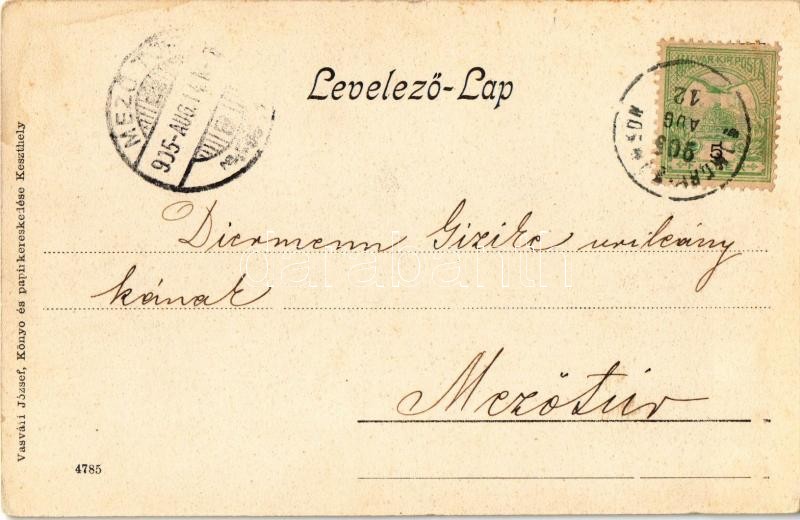 Levelező-Lap
MEZŐ
905-AUG.14
MAGYAR KIR. POSTA
5
905
AUG
12
Diermenn Gizike urileány
kának
Mezőtúr
darabanth
Vasváii József, Könyo és papirkereskedése Keszthely
4785